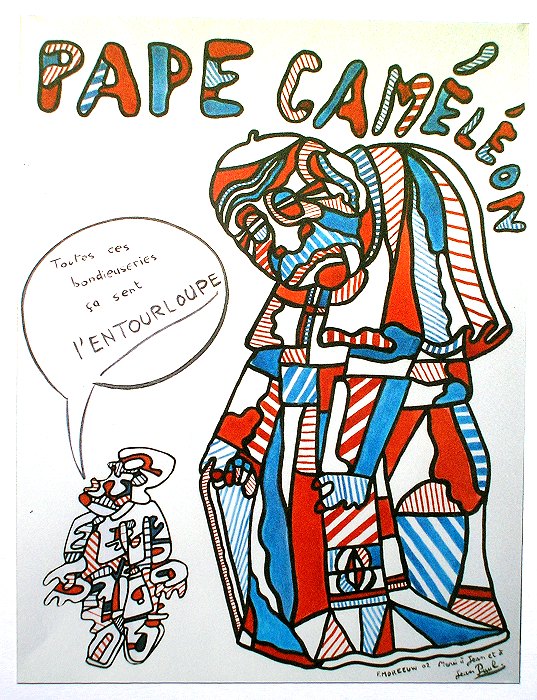 PAPE CAMÉLÉON
Toutes ces
bondieuseries
ça sent
l'ENTOURLOUPE
F. MOREEUW 02 Merci à Jean et à
Jean Paul.